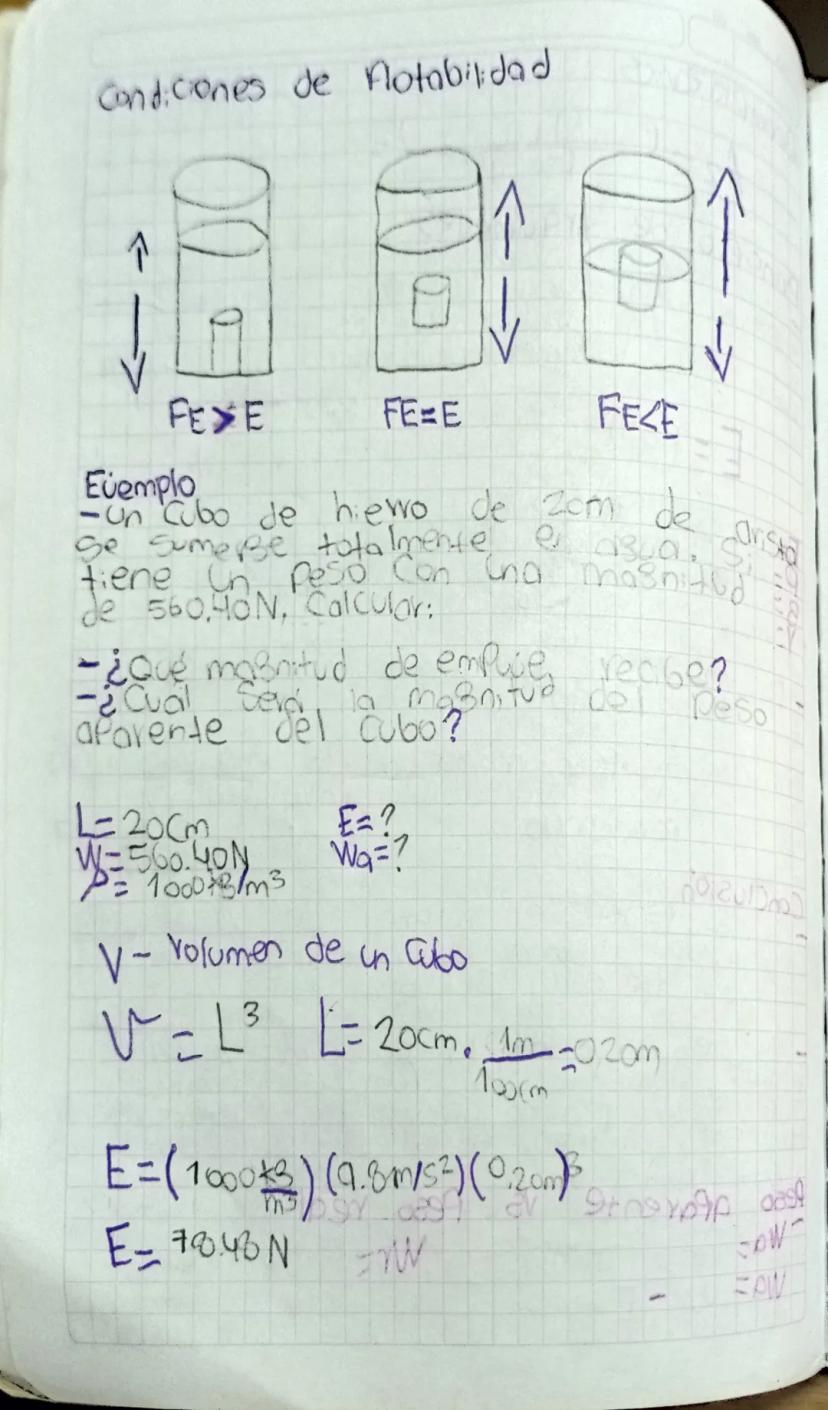 Condiciones de flotabilidad
FE>E FE=E FE<E
Ejemplo
-Un Cubo de hierro de 2cm de arista
se sumerge totalmente en agua. Si
tiene un Peso Con una magnitud
de 560.40N, Calcular:
-¿Qué magnitud de empuje recibe?
-¿Cual Será la magnitud del peso
aparente del Cubo?
L=20Cm E=?
W=560.40N Wa=?
ρ= 1000kg/m³
V- Volumen de un Cubo
V=L³ L=20cm. 1m/100cm =020m
E=(1000 kg/m³)(9.8m/s²)(0.20m)³
E= 78.48N